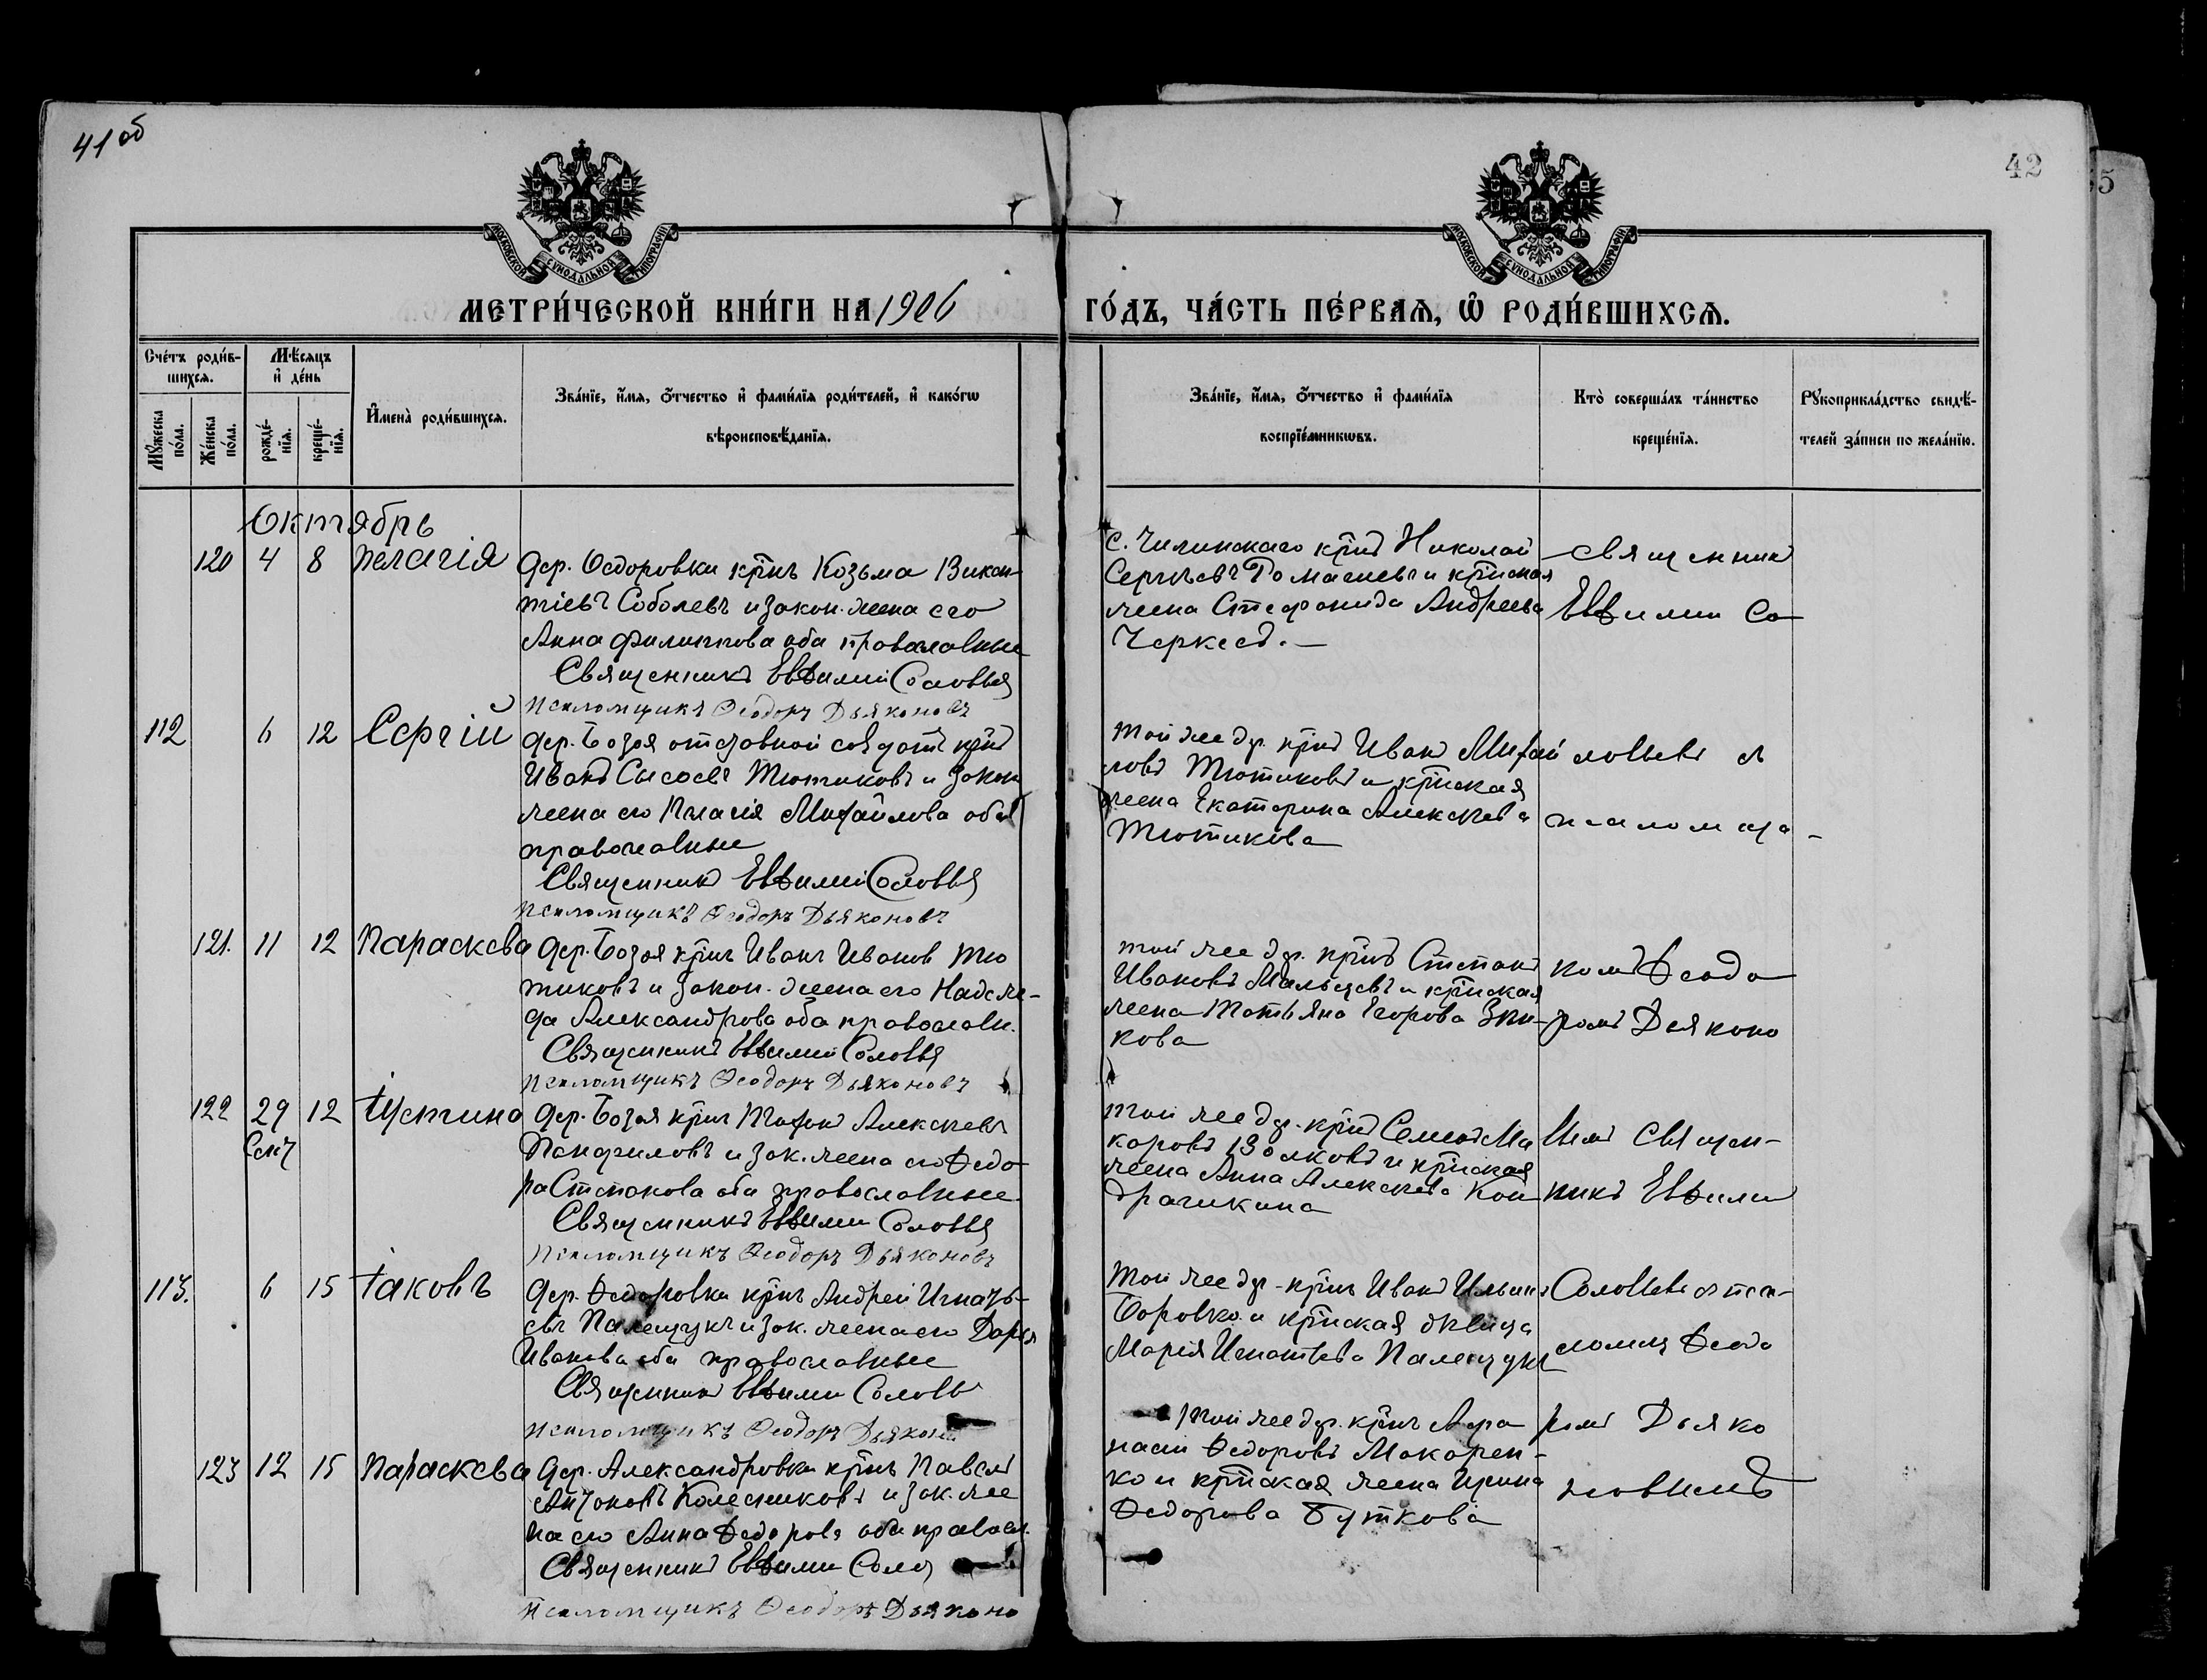 41 об
42
5
МОСКОВСКОЙ СѴНОДАЛЬНОЙ ТИПОГРАФІИ
МОСКОВСКОЙ СѴНОДАЛЬНОЙ ТИПОГРАФІИ
МЕТРИ́ЧЕСКОЙ КНИ́ГИ НА 1906
ГО́ДЪ, ЧА́СТЬ ПЕ́РВАѦ, Ѡ҆ РОДИ́ВШИХСѦ.
Сче́тъ роди́в-
шихсѧ.
Мѣ́сѧцъ
и҆ де́нь
Мꙋ́жеска
по́ла.
Же́нска
по́ла.
рожде́-
нїѧ.
креще́-
нїѧ.
И҆мена̀ роди́вшихсѧ.
Зва́нїе, и҆́мѧ, ѻ҆́тчество и҆ фами́лїѧ роди́телей, и҆ како́гѡ
вѣроисповѣ́данїѧ.
Зва́нїе, и҆́мѧ, ѻ҆́тчество и҆ фами́лїѧ
воспрїе́мникѡвъ.
Кто̀ соверша́лъ та́инство
креще́нїѧ.
Рꙋкоприкла́дство свидѣ́-
телей за́писи по жела́нїю.
Октябрь
120 4 8 Пелагія
дер. Ѳедоровки крнъ Козьма Викен-
тіевъ Соболевъ и закон. жена его
Анна Филиппова оба православные
Священникъ Евѳимій Соловьев
Псаломщикъ Ѳеодоръ Дьяконовъ
с. Чилинскаго крнъ Николай
Сергѣевъ Ромашевъ и крнская
жена Стефанида Андреева
Черкесъ. —
священник
Евѳимий Со
112 6 12 Сергій
дер. Базоя отставной солдатъ крнъ
Иванъ Сысоевъ Тютиковъ и закон
жена его Пелагія Михайлова оба
православные
Священник Евѳимий Соловьев
Псаломщикъ Ѳеодоръ Дьяконовъ
той же др. крнъ Иванъ Михай
ловъ Тютиковъ и крнская
жена Екатерина Алексѣева
Тютикова
ловьевъ съ
псаломщ-
121. 11 12 Параскева
дер. Базоя крнъ Иванъ Иванов Тю
тиковъ и закон. жена его Надеж-
да Александрова оба православн.
Священник Евѳимий Соловьев
Псаломщикъ Ѳеодоръ Дьяконовъ
той же др. крнъ Степанъ
Ивановъ Мальцевъ и крнская
жена Татьяна Егорова
кова
комъ Ѳеодо
ромъ Дьяконо
122 29 12 Іустина
Сент
дер. Базоя крнъ Алексѣевъ
Панфиловъ и зак. жена его Ѳедо
ра Степанова оба православные
Священникъ Евѳимий Соловьев
Псаломщикъ Ѳеодоръ Дьяконовъ
той же др. крнъ Семенъ Ма
каровъ Волковъ и крнская
жена Анна Алексѣева Кон
драшкина
вым Священ-
никъ Евѳимий
113. 6 15 Іаковъ
дер. Ѳедоровки крнъ Андрей Игнать-
евъ Палещукъ и зак. жена его Дарья
Иванова оба православные
Священник Евѳимий Соловь
Псаломщикъ Ѳеодоръ Дьяконо
той же др. крнъ Иванъ Ильинъ
Боровко и крнская дѣвица
Марія Игнатьева Палещукъ
Соловьевъ съ пса-
ломщ Ѳеодо
123 12 15 Параскева
дер. Александровки крнъ Павелъ
Антоновъ Колесниковъ и зак. же
на его Анна Ѳедорова оба правосл.
Священник Евѳимий Соло
Псаломщикъ Ѳеодоръ Дьяконо
той же др. крнъ Афа
насій Ѳедоровъ Макарен-
ко и крнская жена Ирина
Ѳедорова Буткова
ромъ Дьяко
новымъ